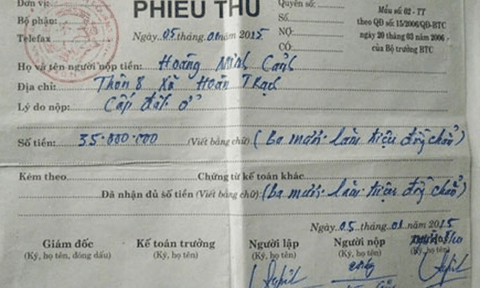 Đơn vị:
PHIẾU THU
Quyển số:
Mẫu số 02 - TT
Bộ phận:
Số
theo QĐ số 15/2006/QĐ-BTC
Telefax
Ngày 05 tháng 01 năm 2015
NỢ:
ngày 20 tháng 03 năm 2006
CÓ:
của Bộ trưởng BTC
Họ và tên người nộp tiền: Hoàng Minh Cảnh
Địa chỉ: Thôn 8 Xã Hoằn Trạch
Lý do nộp: Cấp đất ở
Số tiền: 35.000.000 (Viết bằng chữ) (Ba mươi lăm triệu đồng chẵn)
Kèm theo: Chứng từ kế toán khác
Đã nhận đủ số tiền (Viết bằng chữ) (Ba mươi lăm triệu đồng chẵn)
Ngày 05 tháng 01 năm 2015
Giám đốc Kế toán trưởng Người lập Người nộp
(Ký, họ tên, đóng dấu) (Ký, họ tên) (Ký, họ tên) (Ký, họ tên) (Ký, họ tên)